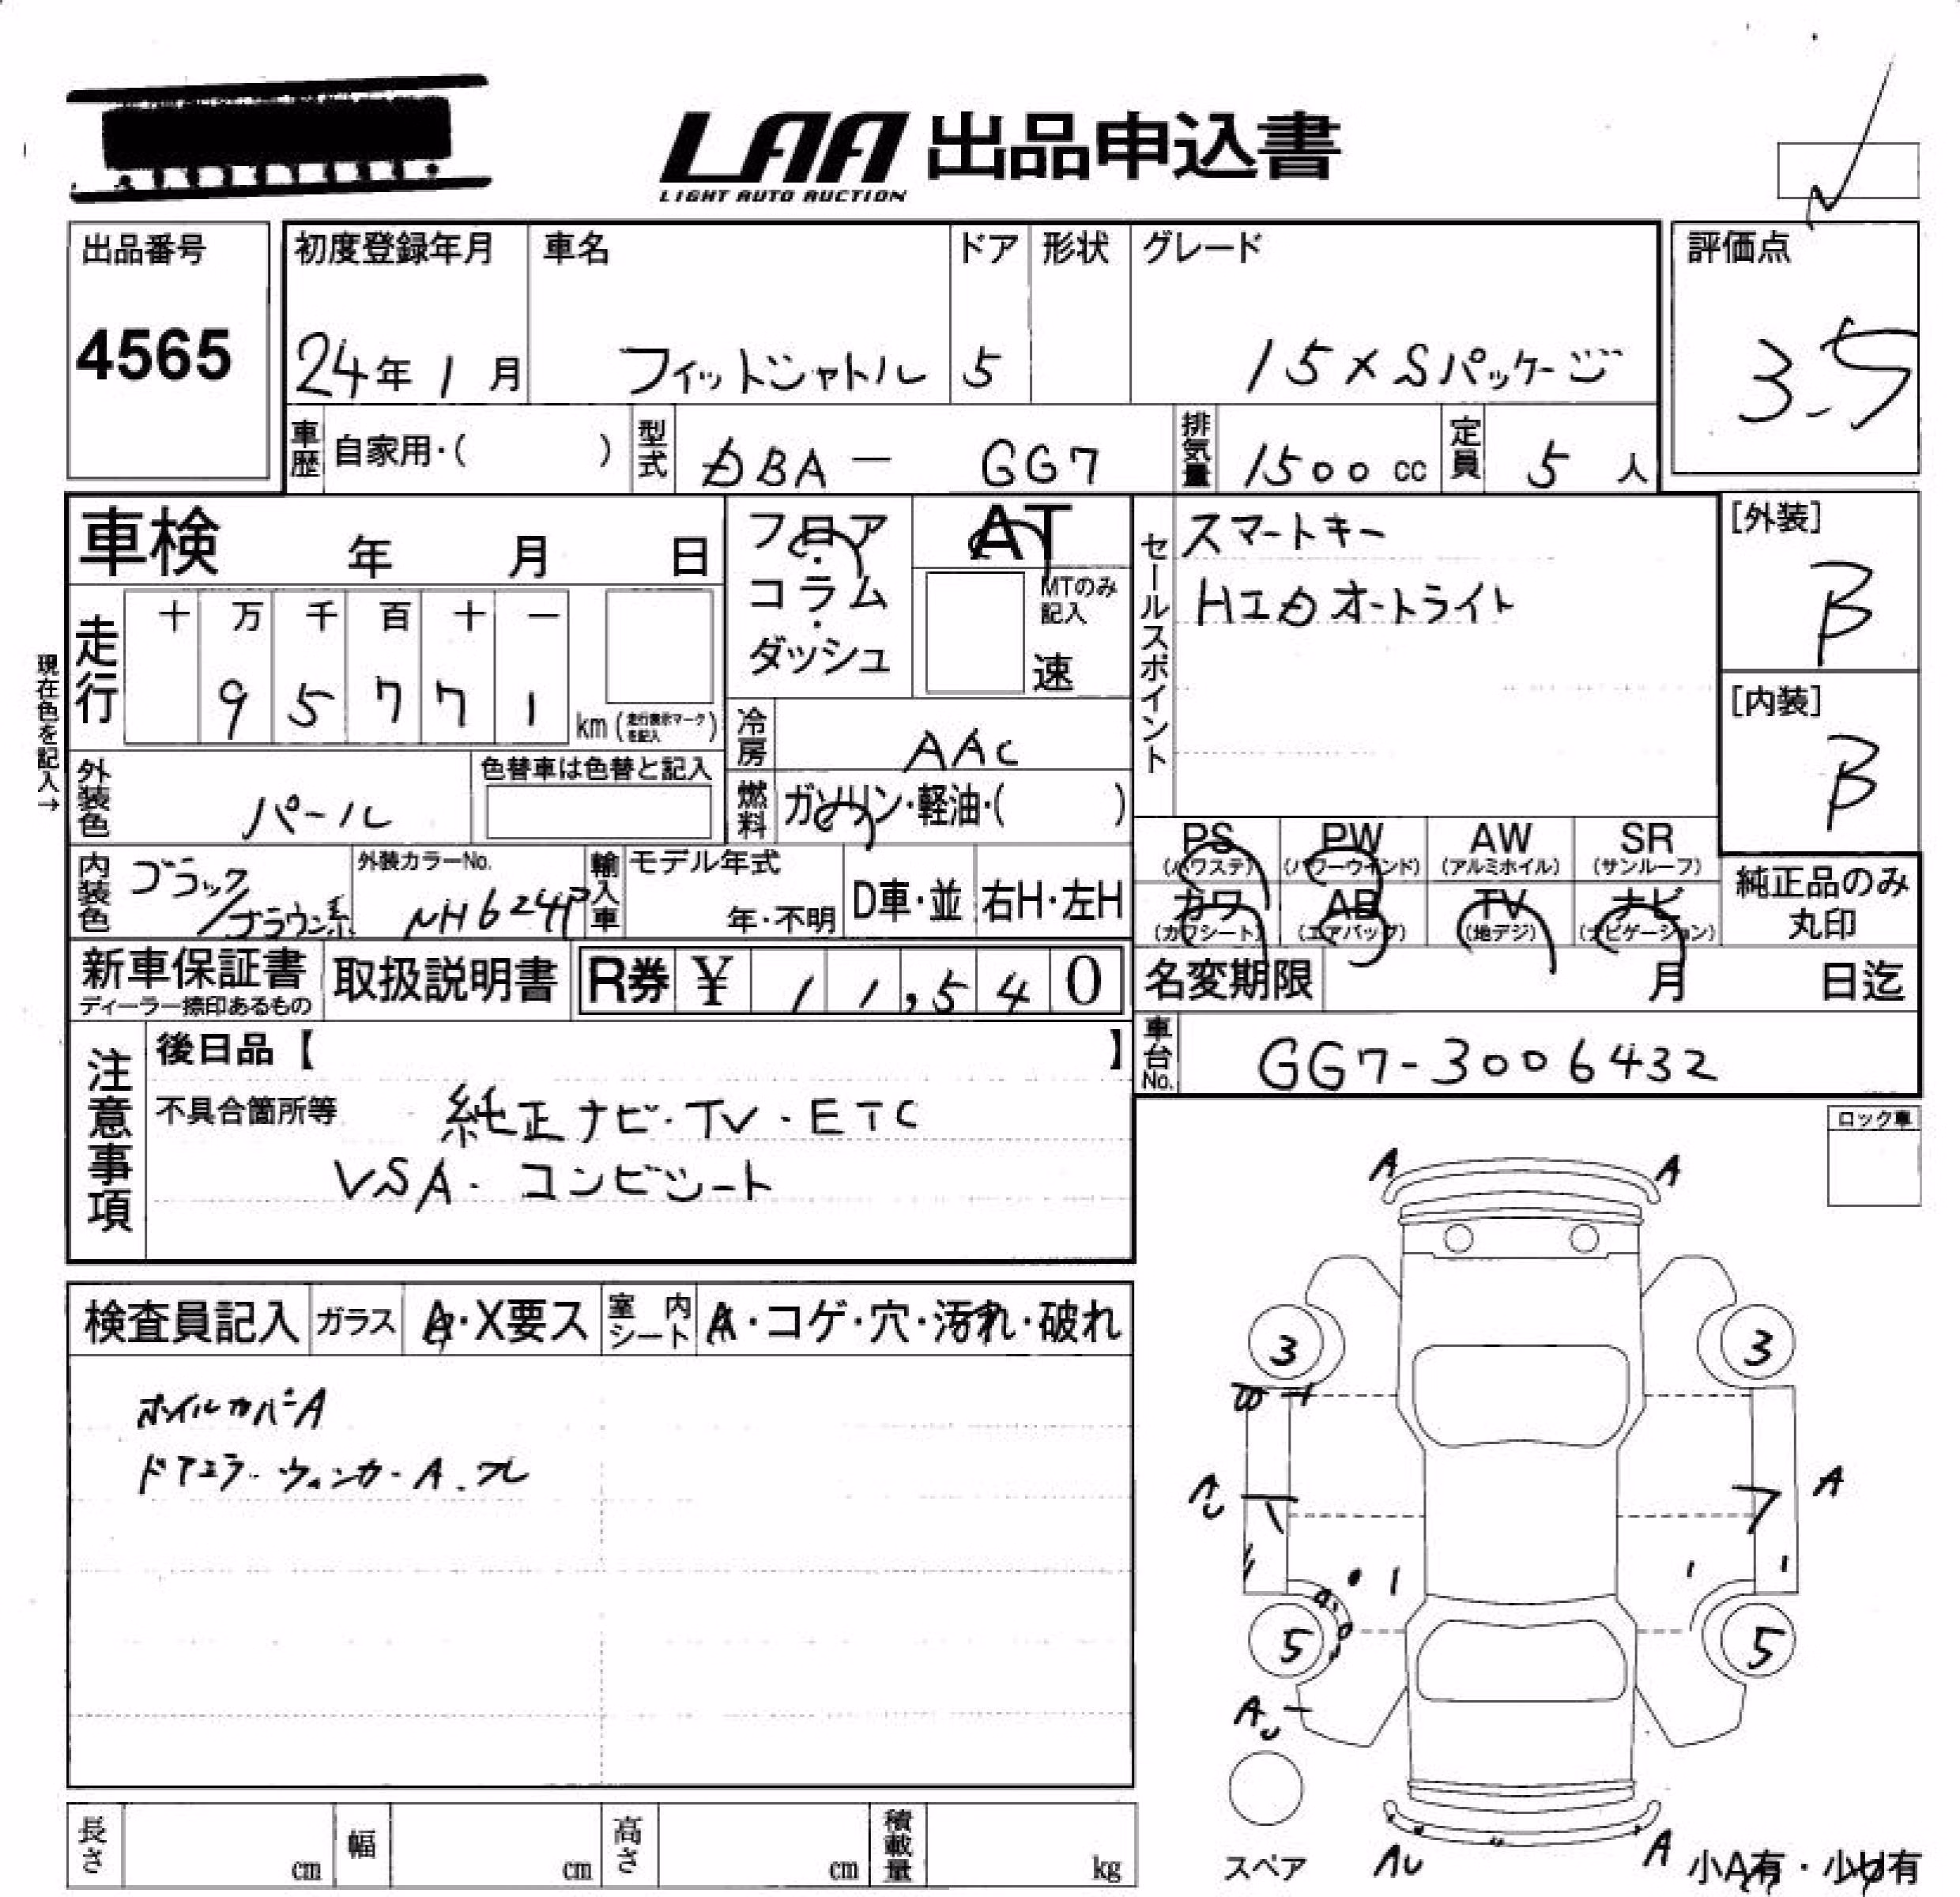 LAA 出品申込書
LIGHT AUTO AUCTION
出品番号
4565
初度登録年月
24年1月
車名
フィットシャトル
ドア
5
形状
グレード
15XSパッケージ
評価点
3.5
車歴
自家用・( )
型式
DBA- GG7
排気量
1500cc
定員
5人
車検 年 月 日
フロア・コラム・ダッシュ
AT
MTのみ記入
速
セールスポイント
スマートキー
HIDオートライト
[外装]
B
[内装]
B
現在色を記入→
走行
十 万 千 百 十 一
9 5 7 7 1
km (走行表示マークを記入)
冷房
AAC
外装色
パール
色替車は色替と記入
燃料
ガソリン・軽油・( )
内装色
ブラック/ブラウン系
外装カラーNo.
NH624P
輸入車
モデル年式
年・不明
D車・並
右H・左H
PS (パワステ)
PW (パワーウインド)
AW (アルミホイル)
SR (サンルーフ)
カワ (カワシート)
AB (エアバッグ)
TV (地デジ)
ナビ (ナビゲーション)
純正品のみ
丸印
新車保証書
ディーラー捺印あるもの
取扱説明書
R券 ¥ 11,540
名変期限 月 日迄
車台No.
GG7-3006432
注意事項
後日品【 】
不具合箇所等
純正ナビ・TV・ETC
VSA・コンビシート
ロック車
検査員記入
ガラス
A・X要ス
室内シート
A・コゲ・穴・汚れ・破れ
ホイルカバーA
ドアミラーウィンカーA.ワレ
A
A
3
3
A
5
5
A
スペア
AU
A
小A有・小U有
長さ cm
幅 cm
高さ cm
積載量 kg